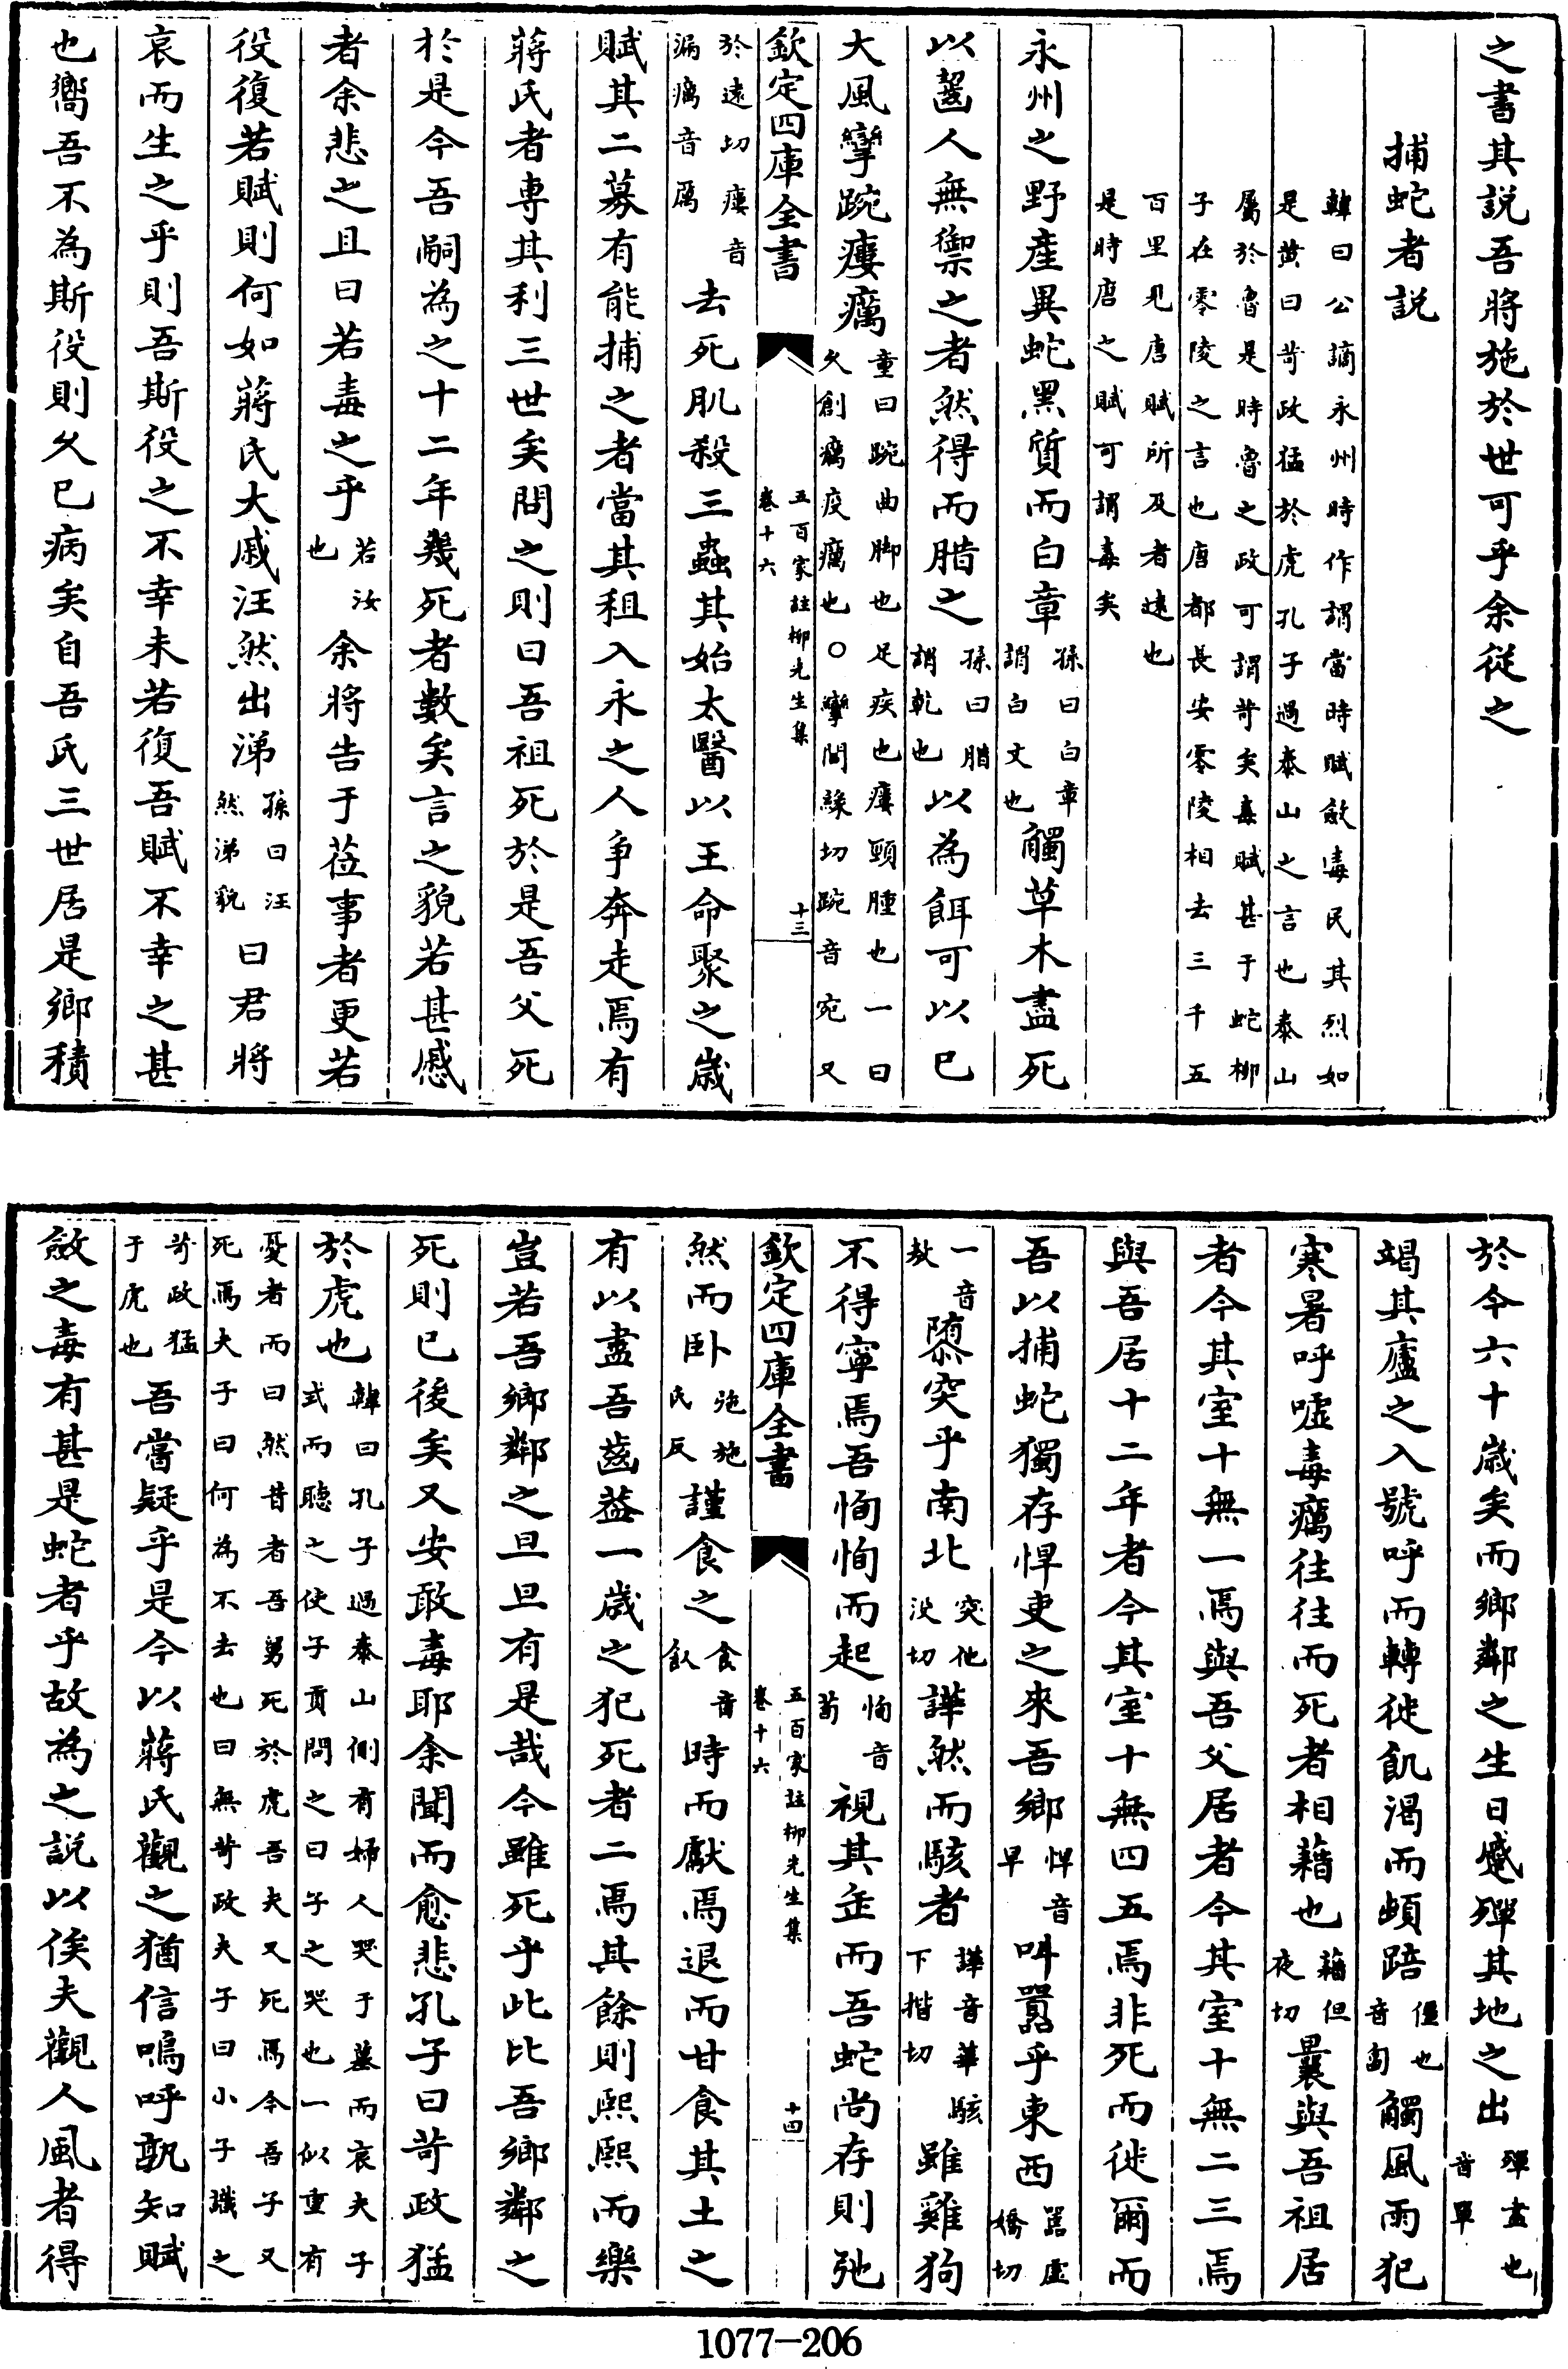 之書其説吾將施於世可乎余從之
捕蛇者説
韓曰公謫永州時作謂當時賦斂毒民其烈如
是黄曰苛政猛於虎孔子過泰山之言也泰山
屬於魯是時魯之政可謂苛矣毒賦甚于蛇柳
子在零陵之言也唐都長安零陵相去三千五
百里見唐賦所及者逺也
是時唐之賦可謂毒矣
永州之野産異蛇黑質而白章孫曰白章謂白文也觸草木盡死
以齧人無禦之者然得而腊之孫曰腊謂乾也以為餌可以已
大風攣踠瘻癘童曰踠曲脚也足疾也瘻頸腫也一曰久創癘疫癘也○攣閭緣切踠音宛又
欽定四庫全書
五百家註柳先生集
卷十六
十三
於逺切瘻音漏癘音厲去死肌殺三蟲其始太醫以王命聚之歲
賦其二募有能捕之者當其租入永之人争奔走焉有
蔣氏者専其利三世矣問之則曰吾祖死於是吾父死
於是今吾嗣為之十二年幾死者數矣言之貌若甚慼
者余悲之且曰若毒之乎若汝也余將告于莅事者更若
役復若賦則何如蔣氏大戚汪然出涕孫曰汪然涕貌曰君將
哀而生之乎則吾斯役之不幸未若復吾賦不幸之甚
也嚮吾不為斯役則久已病矣自吾氏三世居是鄉積
於今六十歲矣而鄉鄰之生日蹙殫其地之出殫盡也音單
竭其廬之入號呼而轉徙飢渴而頓踣僵也音匐觸風雨犯
寒暑呼嘘毒癘往往而死者相藉也藉但夜切曩與吾祖居
者今其室十無一焉與吾父居者今其室十無二三焉
與吾居十二年者今其室十無四五焉非死而徙爾而
吾以捕蛇獨存悍吏之來吾鄉悍音旱叫囂乎東西囂虛嬌切
一音敖隳突乎南北突他没切譁然而駭者譁音華駭下揩切雖雞狗
不得寧焉吾恂恂而起恂音荀視其缶而吾蛇尚存則弛
欽定四庫全書
五百家註柳先生集
卷十六
十四
然而卧弛施氏反謹食之食音飤時而獻焉退而甘食其土之
有以盡吾齒葢一歲之犯死者二焉其餘則熙熙而樂
豈若吾鄉鄰之旦旦有是哉今雖死乎此比吾鄉鄰之
死則已後矣又安敢毒耶余聞而愈悲孔子曰苛政猛
於虎也韓曰孔子過泰山側有婦人哭于墓而哀夫子式而聽之使子貢問之曰子之哭也一似重有
憂者而曰然昔者吾舅死於虎吾夫又死焉今吾子又
死焉夫子曰何為不去也曰無苛政夫子曰小子識之
苛政猛于虎也吾嘗疑乎是今以蔣氏觀之猶信嗚呼孰知賦
斂之毒有甚是蛇者乎故為之説以俟夫觀人風者得
1077—206